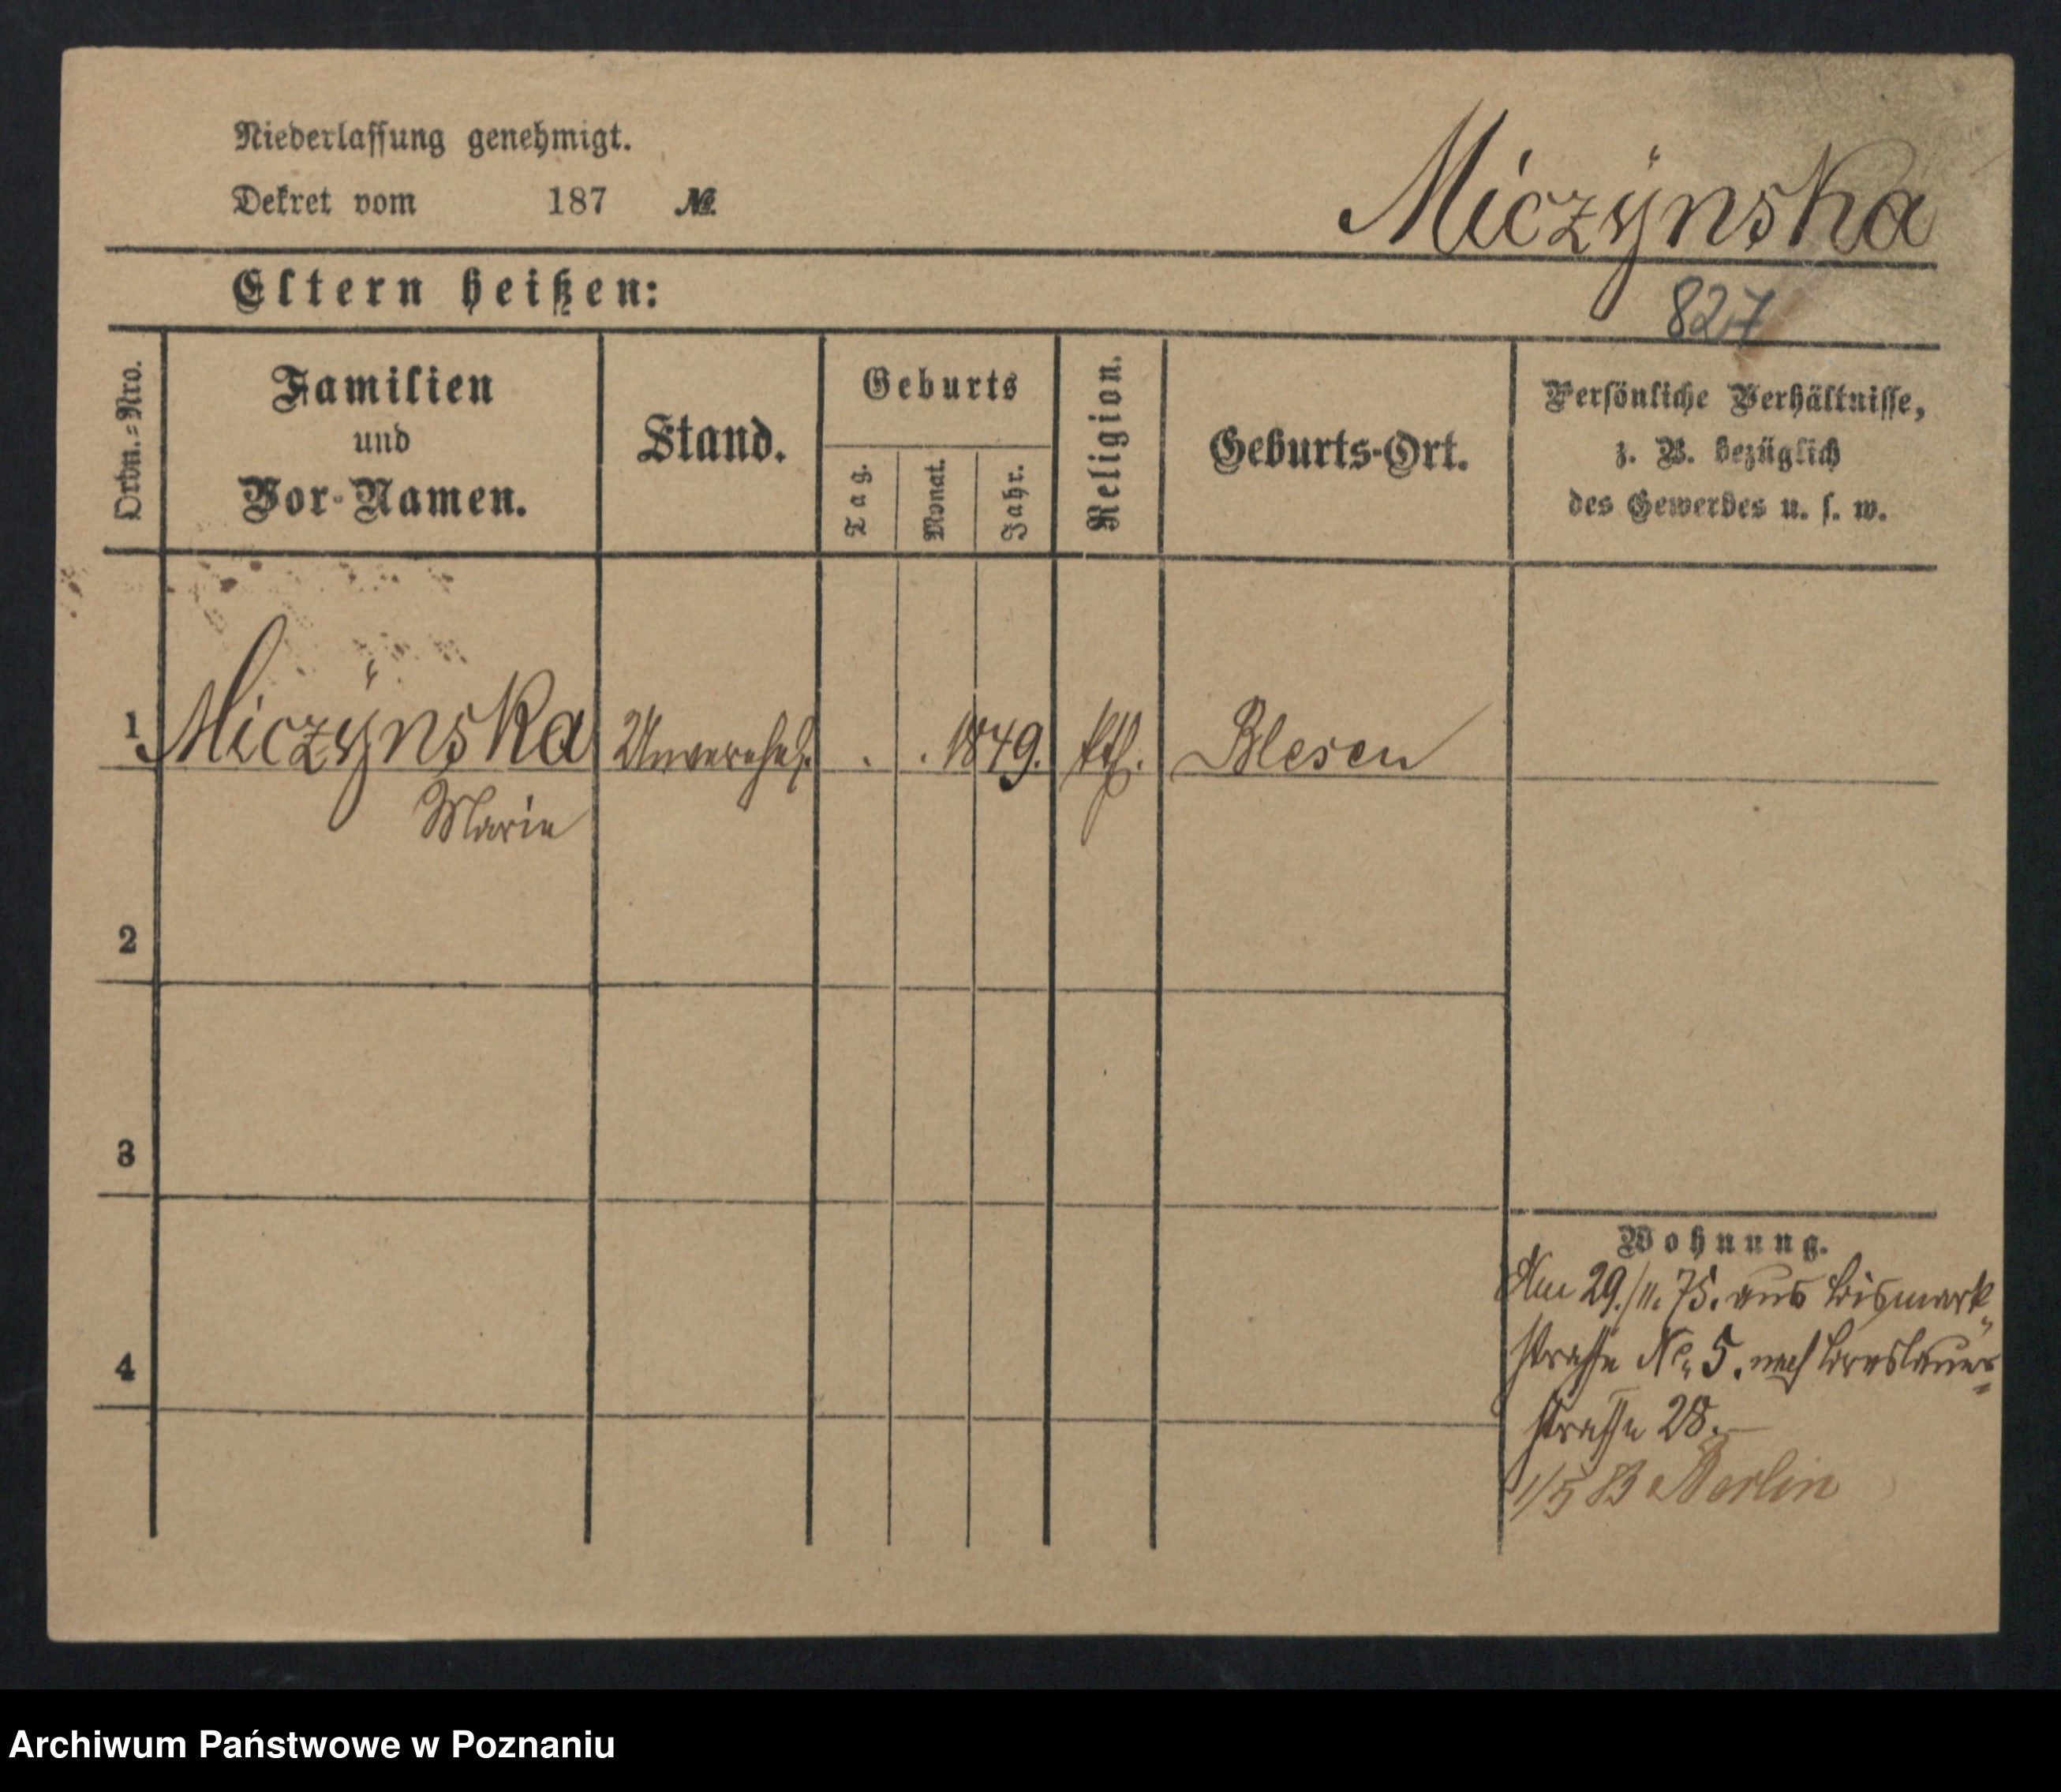 Niederlassung genehmigt.
Dekret vom 187 №
Miczÿnska
Eltern heißen:
827
Ordn.=Nro.
Familien
und
Vor-Namen.
Stand.
Geburts
Tag.
Monat.
Jahr.
Religion.
Geburts-Ort.
Persönliche Verhältnisse,
z. B. bezüglich
des Gewerbes u. s. w.
1 Miczÿnska Unverehel. . . 1849. kth. Blesen
Marie
2
3
4
Wohnung.
Am 29./11. 75. aus Bismark-
strasse No. 5. nach Breslauer-
strasse 28.
1/5 83 Berlin
Archiwum Państwowe w Poznaniu